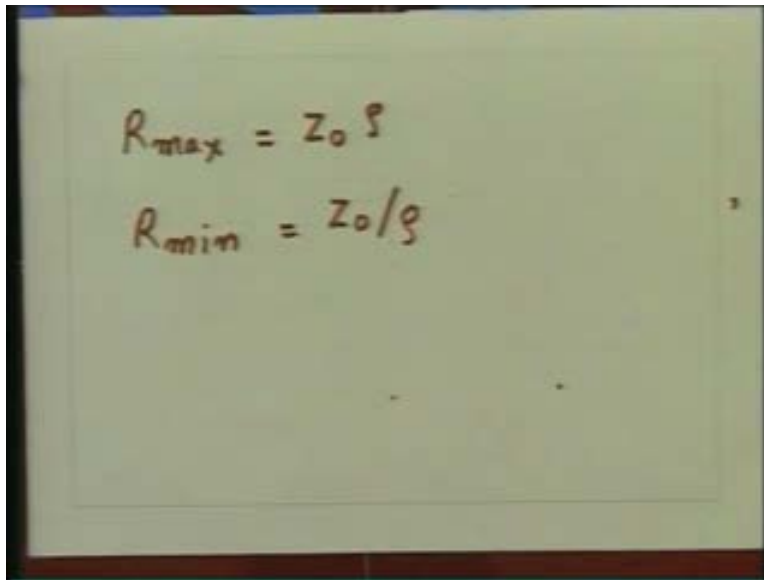 Rmax = Z0 ρ
Rmin = Z0/ρ